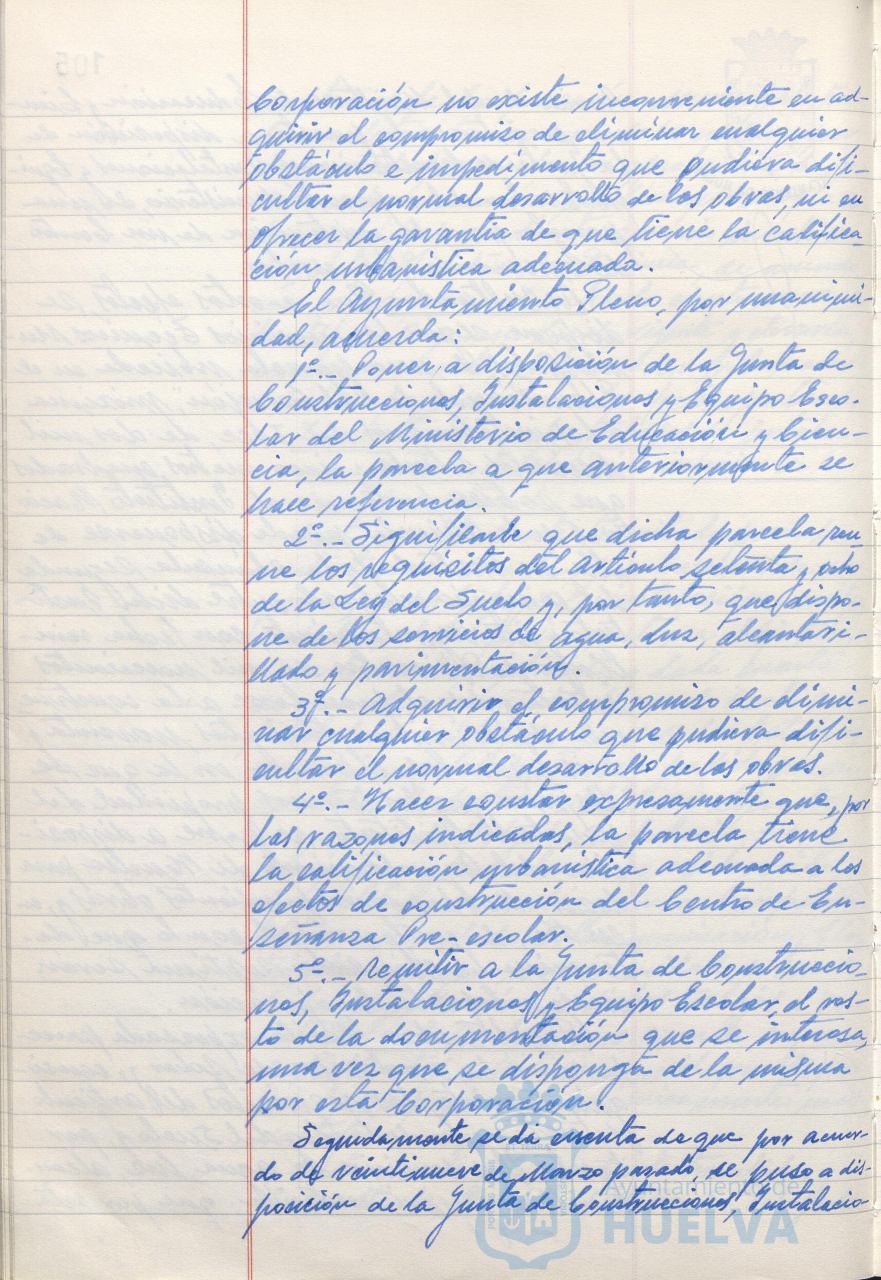 Corporación no existe inconveniente en ad-
quirir el compromiso de eliminar cualquier
obstáculo e impedimento que pudiera difi-
cultar el normal desarrollo de las obras, ni en
ofrecer la garantia de que tiene la califica-
ción urbanistica adecuada.
El Ayuntamiento Pleno, por unanimi-
dad, acuerda:
1º.- Poner a disposición de la Junta de
Construcciones, Instalaciones y Equipo Esco-
lar del Ministerio de Educación y Cien-
cia, la parcela a que anteriormente se
hace referencia.
2º.- Significarle que dicha parcela reu
ne los requisitos del Artículo setenta y ocho
de la Ley del Suelo y, por tanto, que dispo-
ne de los servicios de agua, luz, alcantari-
llado y pavimentación.
3º.- Adquirir el compromiso de elimi-
nar cualquier obstáculo que pudiera difi-
cultar el normal desarrollo de las obras.
4º.- Hacer constar expresamente que, por
las razones indicadas, la parcela tiene
la calificación urbanistica adecuada a los
efectos de construcción del Centro de En-
señanza Pre-escolar.
5º.- Remitir a la Junta de Construccio-
nes, Instalaciones y Equipo Escolar, el res-
to de la documentación que se interesa,
una vez que se disponga de la misma
por esta Corporación.
Seguidamente se dá cuenta de que por acuer-
do de veintinueve de Marzo pasado, se puso a dis-
posición de la Junta de Construcciones, Instalacio-
Ayuntamiento de
HUELVA